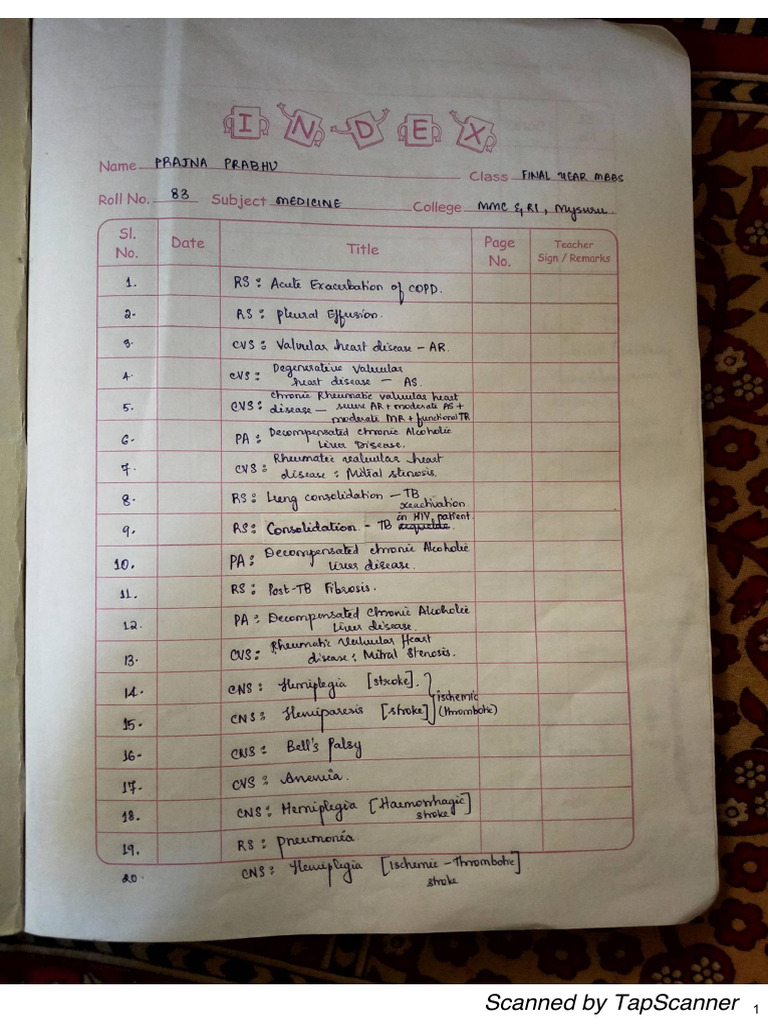 INDEX
Name PRAJNA PRABHU
Class FINAL YEAR MBBS
Roll No. 83 Subject MEDICINE College MMC & RI, Mysuru.
Sl. No. Date Title Page No. Teacher Sign / Remarks
1. RS: Acute Exacerbation of COPD.
2. RS: Pleural Effusion.
3. CVS: Valvular heart disease - AR.
4. CVS: Degenerative Valvular
heart disease - AS.
5. CVS: Chronic Rheumatic valvular heart
disease - severe AR + moderate AS +
moderate MR + functional TR
6. PA: Decompensated chronic Alcoholic
Liver Disease.
7. CVS: Rheumatic valvular heart
disease: Mitral stenosis.
8. RS: Lung consolidation - TB
reactivation
9. RS: Consolidation - TB in HIV patient.
10. PA: Decompensated chronic Alcoholic
liver disease.
11. RS: Post-TB Fibrosis.
12. PA: Decompensated Chronic Alcoholic
Liver disease.
13. CVS: Rheumatic Valvular Heart
disease: Mitral Stenosis.
14. CNS: Hemiplegia [stroke].
15. CNS: Hemiparesis [stroke] ischemic
(thrombotic)
16. CNS: Bell's Palsy
17. CVS: Anemia.
18. CNS: Hemiplegia [Haemorrhagic
stroke]
19. RS: Pneumonia.
20. CNS: Hemiplegia [Ischemic - Thrombotic]
stroke
Scanned by TapScanner 1